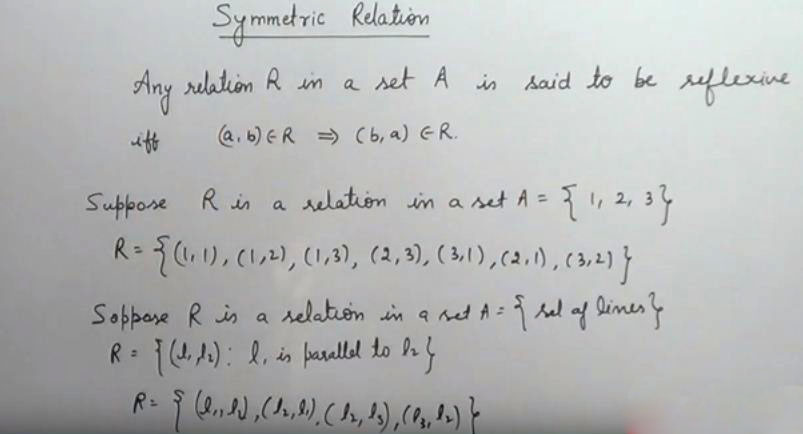 Symmetric Relation
Any relation R in a set A is said to be reflexive
iff (a,b) ∈ R ⇒ (b,a) ∈ R.
Suppose R is a relation in a set A = { 1, 2, 3 }
R = { (1,1), (1,2), (1,3), (2,3), (3,1), (2,1), (3,2) }
Soppose R is a relation in a set A = { set of lines }
R = { (l₁,l₂) : l₁ is parallel to l₂ }
R = { (l₁,l₂), (l₂,l₁), (l₂,l₃), (l₃,l₂) }